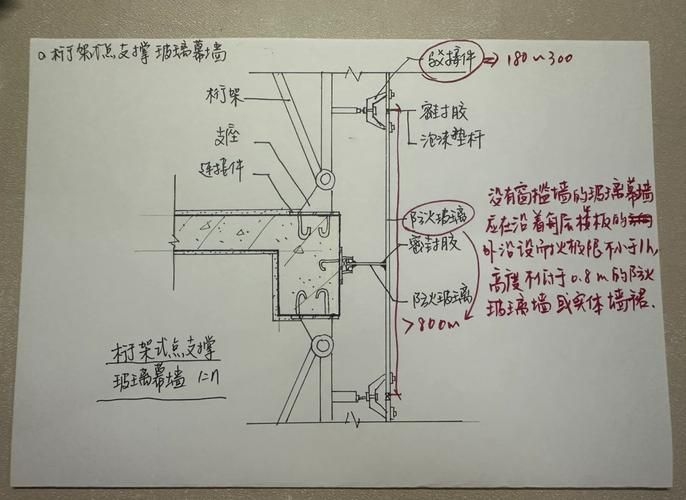 桁架式点支撑玻璃幕墙
驳接件 => 180~300
桁架
支座
连接件
密封胶
泡沫垫杆
防火玻璃
密封胶
防火玻璃
>800m
没有窗槛墙的玻璃幕墙
应在沿着每层楼板的
外沿设耐火极限不小于1h,
高度不小于0.8m的防火
玻璃墙或实体墙裙.
桁架式点支撑
玻璃幕墙 1:n